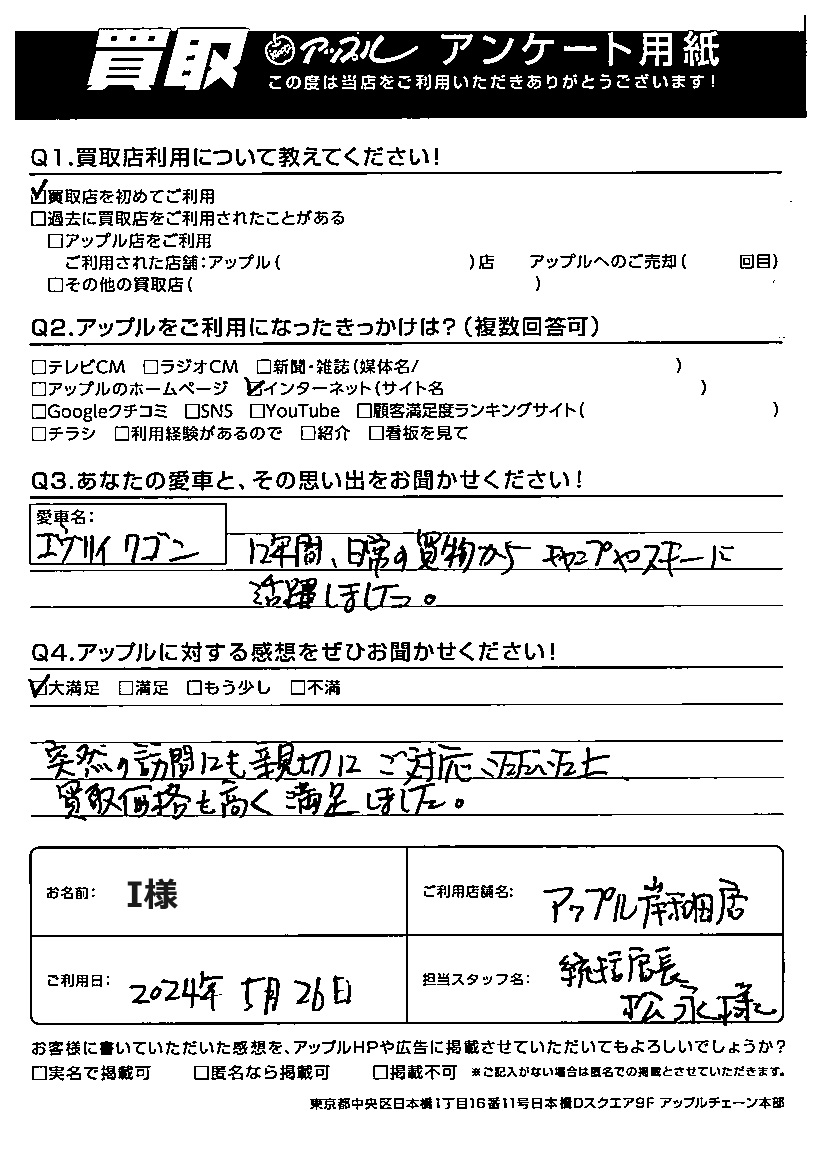 買取 アップル アンケート用紙
この度は当店をご利用いただきありがとうございます!
Q1.買取店利用について教えてください!
☑買取店を初めてご利用
□過去に買取店をご利用されたことがある
□アップル店をご利用
ご利用された店舗:アップル( )店 アップルへのご売却( 回目)
□その他の買取店( )
Q2.アップルをご利用になったきっかけは?(複数回答可)
□テレビCM □ラジオCM □新聞・雑誌(媒体名/ )
□アップルのホームページ ☑インターネット(サイト名 )
□Googleクチコミ □SNS □YouTube □顧客満足度ランキングサイト( )
□チラシ □利用経験があるので □紹介 □看板を見て
Q3.あなたの愛車と、その思い出をお聞かせください!
愛車名:
エヴリイワゴン 12年間、日常の買物から キャンプやスキーに
活躍しました。
Q4.アップルに対する感想をぜひお聞かせください!
☑大満足 □満足 □もう少し □不満
突然の訪問にも親切に ご対応いただいた上
買取価格も高く 満足しました。
お名前: I様 ご利用店舗名: アップル岸和田店
ご利用日: 2024年 5月 26日 担当スタッフ名: 統括店長
松永様
お客様に書いていただいた感想を、アップルHPや広告に掲載させていただいてもよろしいでしょうか?
□実名で掲載可 □匿名なら掲載可 □掲載不可 ※ご記入がない場合は匿名での掲載とさせていただきます。
東京都中央区日本橋1丁目16番11号日本橋Dスクエア9F アップルチェーン本部